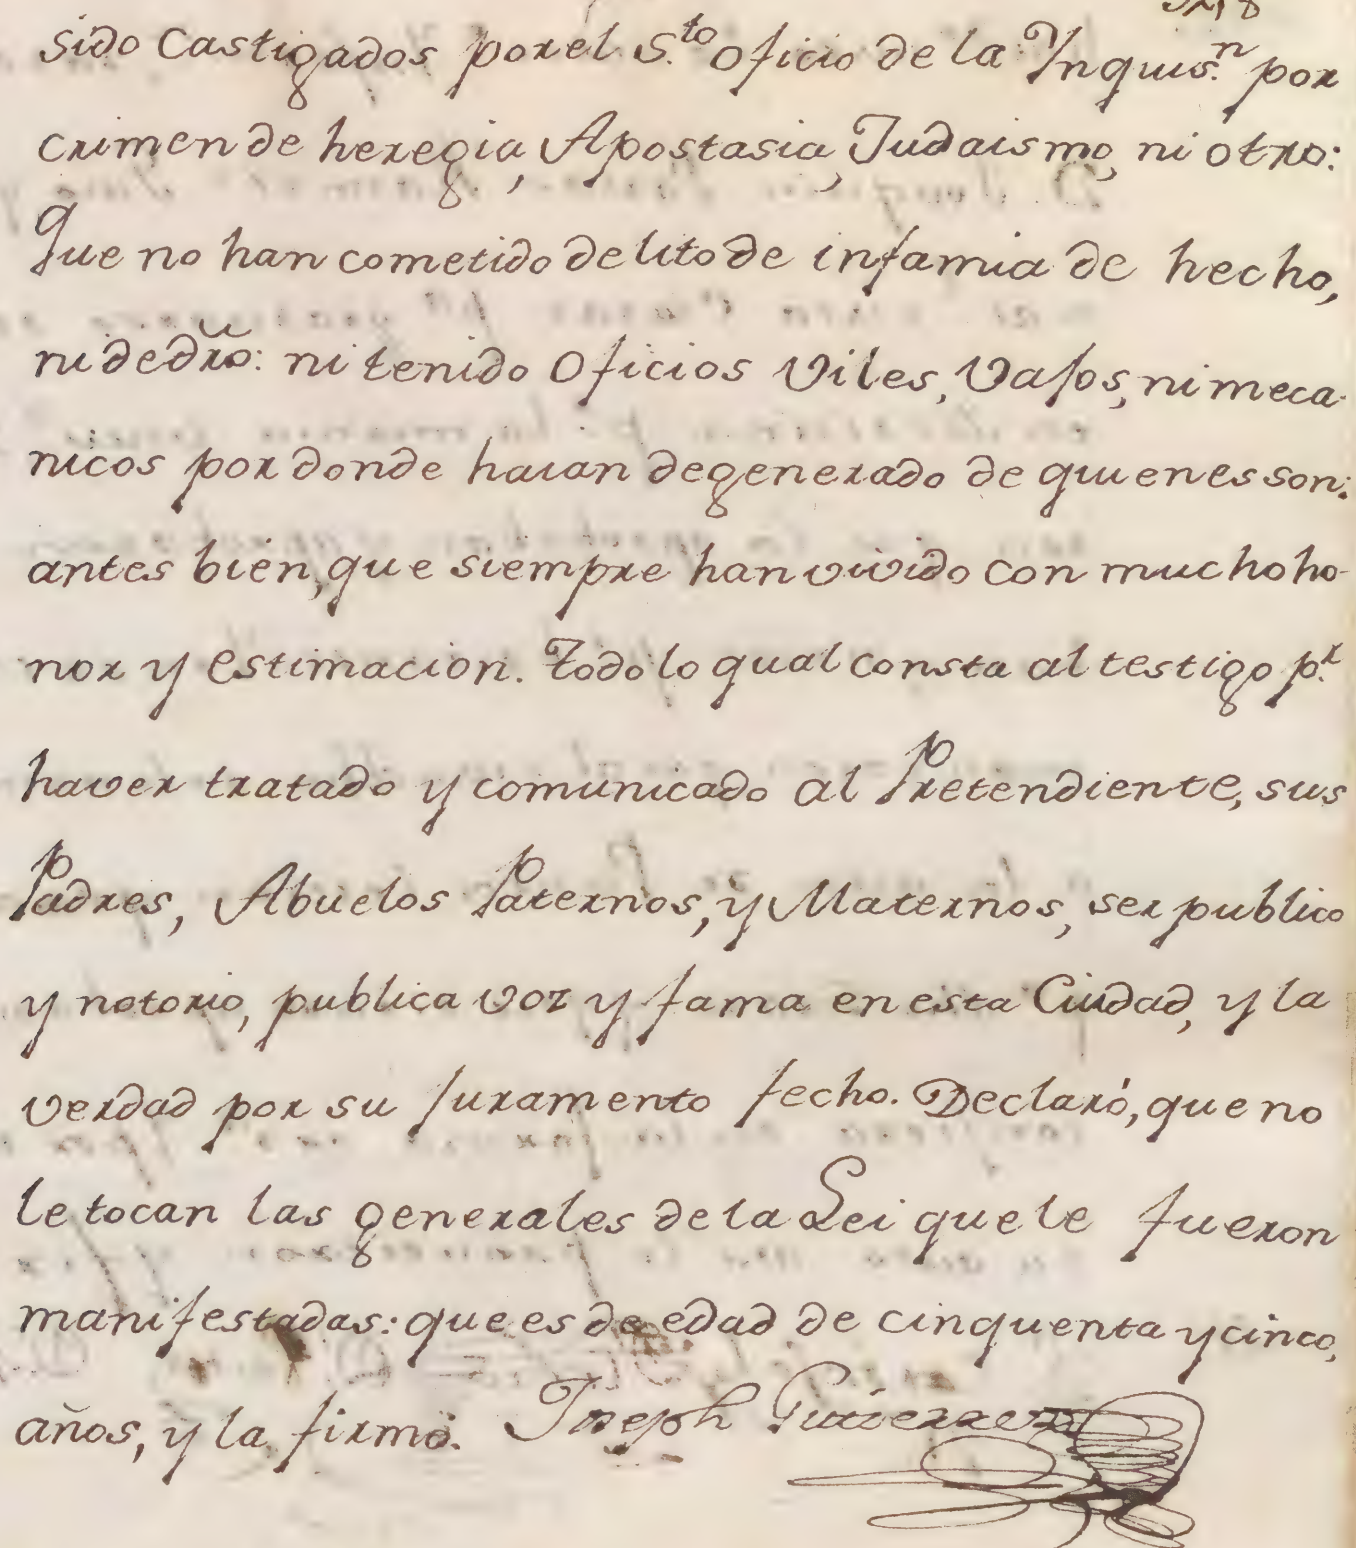 sido Castigados por el S.to Oficio de la Ynquis.n por
crimen de heregia, Apostasia, Judaismo, ni otro:
Que no han cometido delito de infamia de hecho,
ni de dro: ni tenido Oficios Viles, Vajos, ni meca-
nicos por donde haian degenerado de quienes son:
antes bien, que siempre han vivido con mucho ho-
nor y estimacion. Todo lo qual consta al testigo p.r
haver tratado y comunicado al Pretendiente, sus
Padres, Abuelos Paternos, y Maternos, ser publico
y notorio, publica voz y fama en esta Ciudad, y la
verdad por su Juramento fecho. Declaró, que no
le tocan las generales de la Lei que le fueron
manifestadas: que es de edad de cinquenta y cinco,
años, y la firmó. Joseph Gutierrez